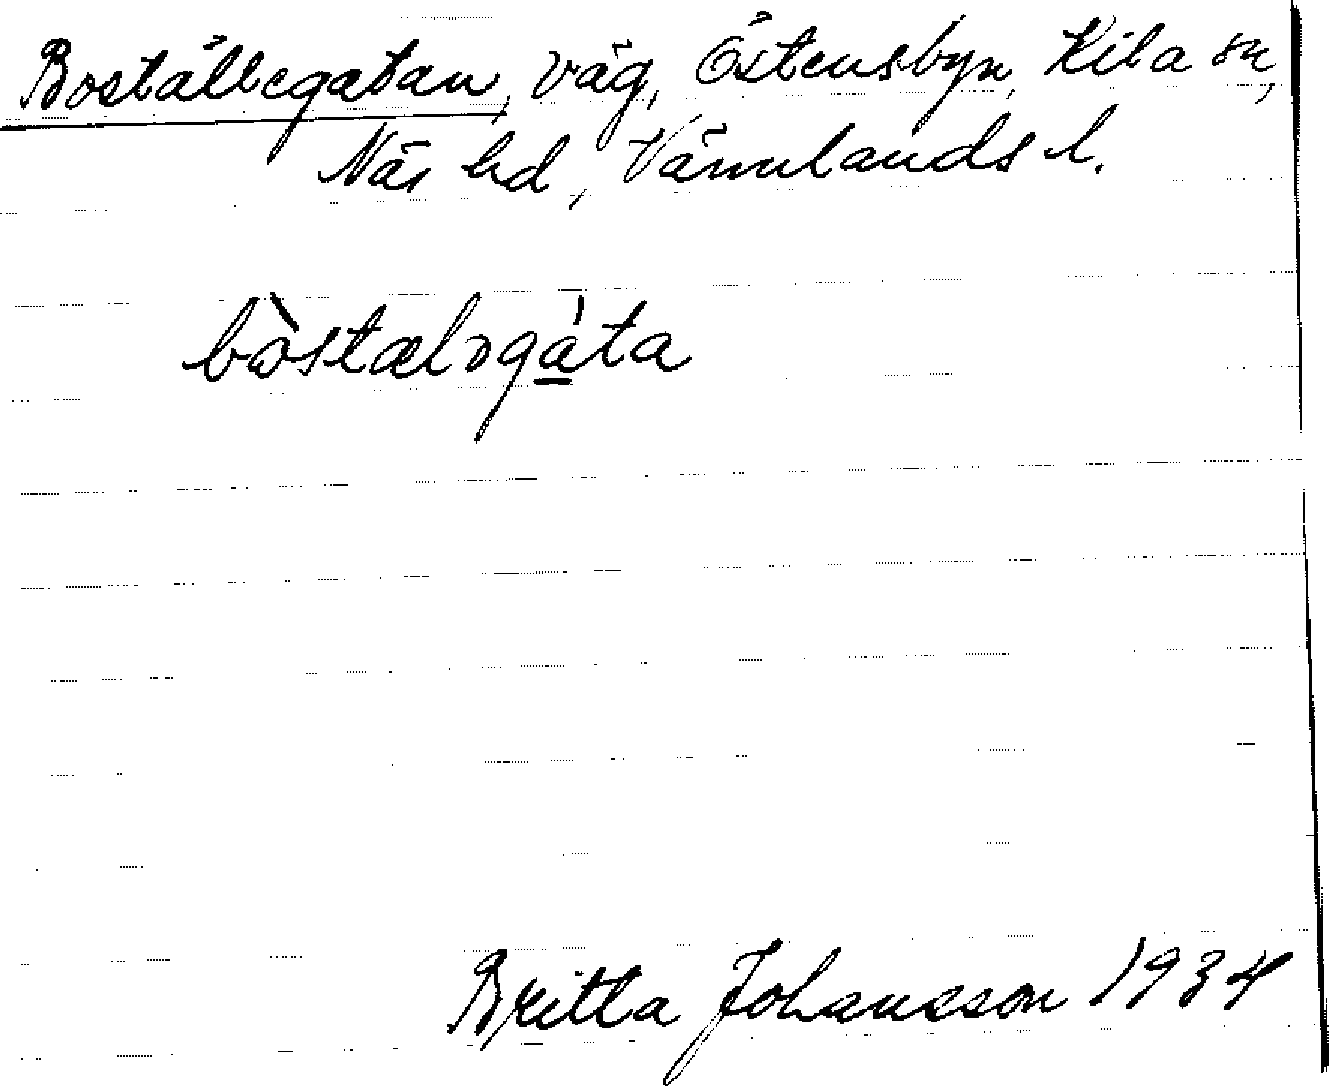 Boställegatan, väg, Östensbyn, Kila sn,
Näs hd, Värmlands l.
bòstæləgáta
Britta Johansson 1934